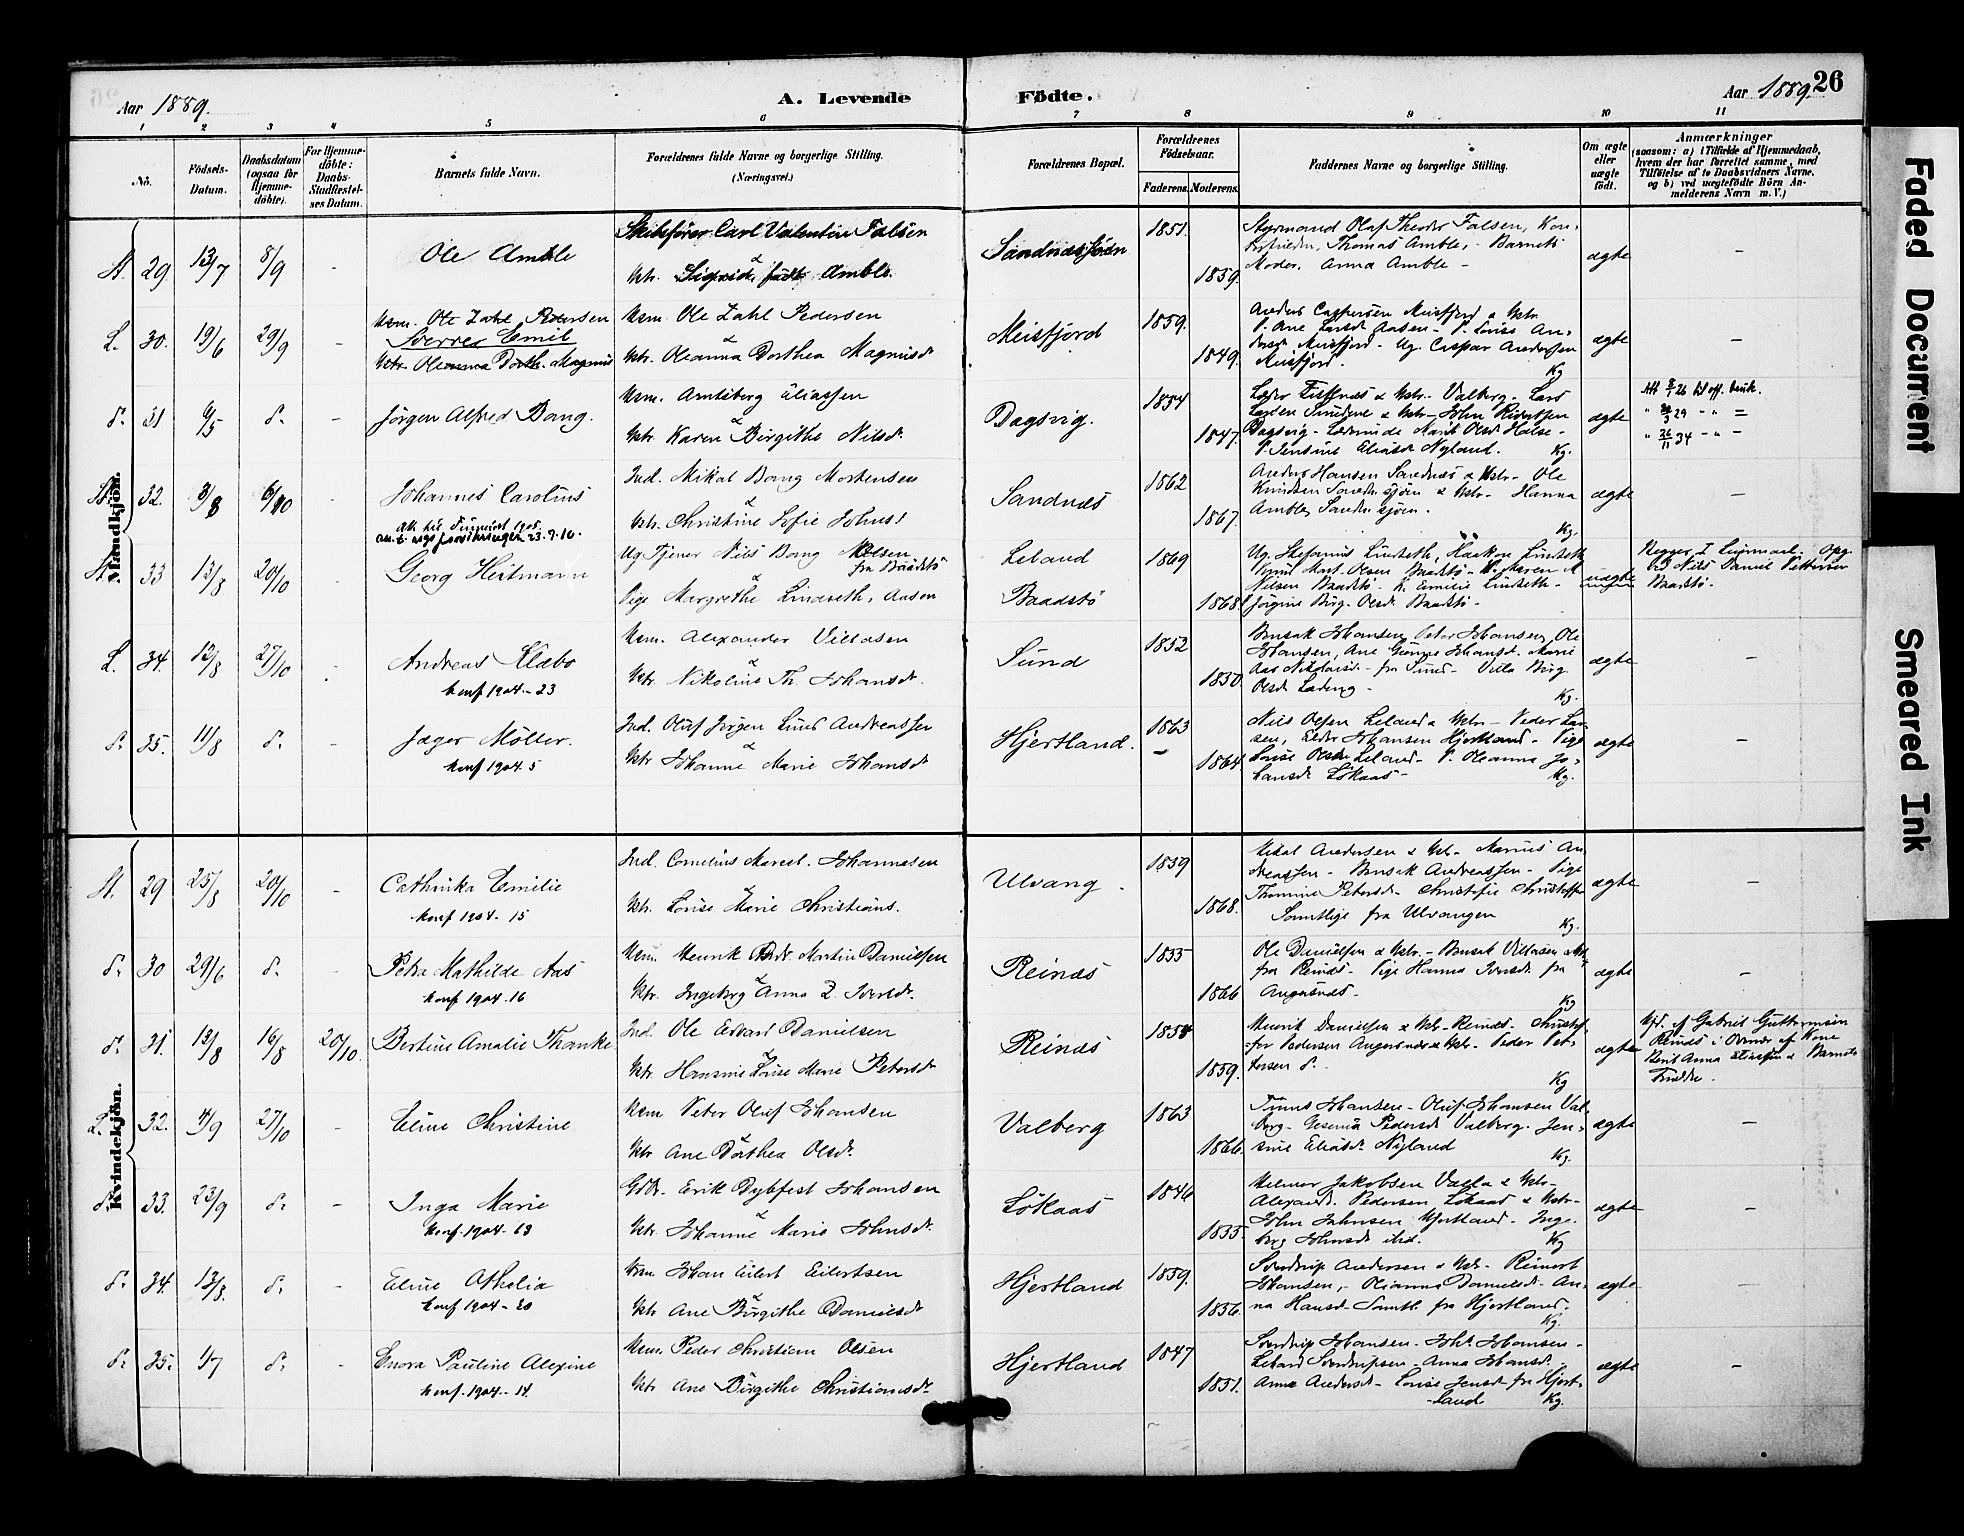 Aar 1889.
A. Levende
Födte.
Aar 1889. 26
1 2 3 4 5 6 7 8 9 10 11
No.
Födsels-
Datum.
Daabsdatum
(ogsaa for
Hjemme-
döbte).
For Hjemme-
döbte:
Daabs-
Stadfæstel-
ses Datum.
Barnets fulde Navn.
Forældrenes fulde Navne og borgerlige Stilling.
(Næringsvei.)
Forældrenes Bopæl.
Forældrenes
Födselsaar.
Faderens. Moderens.
Faddernes Navne og borgerlige Stilling.
Om ægte
eller
uægte
født.
Anmærkninger
(saasom: a) i Tilfælde af Hjemmedaab,
hvem der har forrettet samme, med
Tilføielse af to Daabsvidners Navne,
og b) ved uægtefödte Börn An-
melderens Navn m. V.)
Mandkjön.
St. 29. 13/7 8/9 -
Ole Amble
Skibsfører Carl Valentin Falsen
&
Kstr. Sigrid, født Amble.
Sandnæssjöen
1851.
1859.
Styrmand Olaf Theodor Falsen, Kon-
Thomas Amble, - Barnets
Moder. Anna Amble -
ægte
-
L. 30. 19/6 29/9 -
Msm. Ole Zahl Pedersen
Sverre Emil
Kstr. Oleanna Dorth. Magnus
Msm. Ole Zahl Pedersen
&
Kstr. Oleanna Dorthea Magnusdr
Meisfjord
1859.
1849.
Anders Caspersen Meisfjord & Kstr
P. Ane Larsdr Aasen - P. Louise An-
dersdr Meisfjord - Ug. Caspar Andersen
Meisfjord. Kg
ægte
-
d. 31 6/5 d. -
Jörgen Alfred Bang.
Msm. Arntsberg Eliassen
&
Kstr. Karen Birgithe Nilsdr.
Dagsvig.
1854
1847.
& Kstr. Valberg. Lars
& Kstr - John
Dagsvig - Marit Olsdr
P. Jensine Eliasdr Nyland. Kg.
ægte
Att 8/7 26 til off. bruk.
" 29 - " =
" 26/11 34 - " -
St. 32. 8/8 6/10
Johannes Carolius
Att. til 1905.
23.9.16.
Ind. Mikal Bang Mortensen
&
Kstr. Christine Sofie Johns!
Sandnæs
1862
1867.
Anders Hansen Sandnæs & Kstr - Ole
Knudsen Sandnæssjöen & Kstr - Hanna
Amble, Sandnessjöen.
Kg.
ægte
-
St. 33 13/8 20/10
Georg Heitmann
Ug. Tjener Nils Bang Nilsen
fra Baadstö
&
Pige Margrethe Lindseth, Aasen
Leland
Baadstö
1869
1868
Ug. Stefanus Lindseth, Haakon Lindseth
Knut Mart. Olsen Baadstö - K. Maren M
Nilsen Baadstö - K. Emilie Lindseth -
Jörgine Birg. Olsdr. Baadstö -
uægte
Begges I Leiermaal. Opg.
ved Nils Daniel Pettersen
Baadstö.
L. 34. 12/8 27/10 .
Andreas Klæbo
Konf 1904 - 23
Msm. Alexander Villasen
&
Kstr. Nikoline Th. Johansdr.
Sund
1852
1850.
Benjak Johansen, Peter Johansen, Ole
Johansen, Ane Johansdr. Marie
Aas Nikolaisdr - fra Sund - Villa Birg.
Olsdr Lading - Kg.
ægte
-
d. 35. 11/8 d. -
Jæger Möller.
Konf 1904. 5
Ind. Oluf Jörgen Lund Andreassen
&
Kstr Johanne Marie Johansdr
Hjertland.
1863
1864.
Nils Olsen Leland & Kstr - Peder Lar-
sen, Peder Johansen Hjertland - Pige
Louise Olsdr Leland - P. Oleanna Jo-
hansdr Lökaas - Kg.
ægte
-
Kvindekjön.
St. 29 25/8 20/10 -
Cathinka Emilie
Konf 1904 - 15
Ind. Cornelius Marcel. Johannesen
&
Kstr. Louise Marie Christians.
Ulvang.
1859
1868.
Mikal Andersen & Kstr - Marius An-
dreassen - Benjak Andreassen - Pige
Thomine Petersdr - Christofie Christoffer
Samtlige fra Ulvangen
Kg.
ægte
-
d. 30 29/6 d. -
Petra Mathilde Aas
Konf 1904 - 16
Msm. Henrik Martin Danielsen
&
Kstr. Ingeborg Anna Z. Iversdr.
Reinæs
1855
1866
Ole Danielsen & Kstr - Benjak Villasen
fra Reinæs - Pige Hanna Iversdr. fra
Angersnæs - Kg
ægte
-
d. 31. 13/8 16/8 20/10.
Bertine Amalie Thanke
Ind. Ole Edvard Danielsen
&
Kstr. Hansine Louise Marie Petersdr
Reinæs
1858
1859.
Henrik Danielsen & Kstr - Reinæs - Christof-
fer Pedersen Angersnæs & Kstr - Peder Pet-
tersen d. -
Kg
ægte
Hjd. af Gabriel Guttormsen
Reinæs i Overvær af Kone
Berit Anna Eliassen & Barnets
Fædre.
L. 32. 4/9 27/10 -
Eline Christine
Msm. Peter Oluf Johansen
&
Kstr Ane Dorthea Olsdr.
Valberg
1863
1866.
Tinus Johansen - Oluf Johansen Val-
berg - Gesenia Pedersdr Valberg. Jen-
sine Eliasdr Nyland
Kg.
ægte
-
d. 33. 23/9 d. -
Inga Marie
Konf. 1904 - 13
Gdbr. Erik Dybfest Johansen
&
Kstr. Johanne Marie Johnsdr.
Lökaas
1846
1855
Helmer Jakobsen Valla & Kstr -
Alexand. Pedersen Lökaas & Kstr -
John Johnsen Hjertland - Inge-
borg Johnsdr ibid. Kg
ægte
-
d. 34. 13/8. d. -
Eline Athalia
Konf 1904 - 20
Msm Johan Eilert Eilertsen
&
Kstr Ane Birgithe Danielsdr
Hjertland
1859.
1856.
Sverdrup Andersen & Kstr - Reinert
Johansen, - Oleanna Danielsdr - An-
na Hansdr - Samtl. fra Hjertland.
Kg.
ægte
-
d. 35. 1/7 d. -
Enora Pauline Alexine
Konf. 1904 - 14.
Msm. Peder Christian Olsen
Kstr Ane Birgithe Christiansdr
Hjertland
1847
1851.
Sverdrup Johansen - Joh. Johansen -
Lebard Sverdrupsen - Anna Johansdr.
Anna Andersdr - Louise Jensdr - fra Hjert-
land Kg.
ægte
-
Faded Document
Smeared Ink